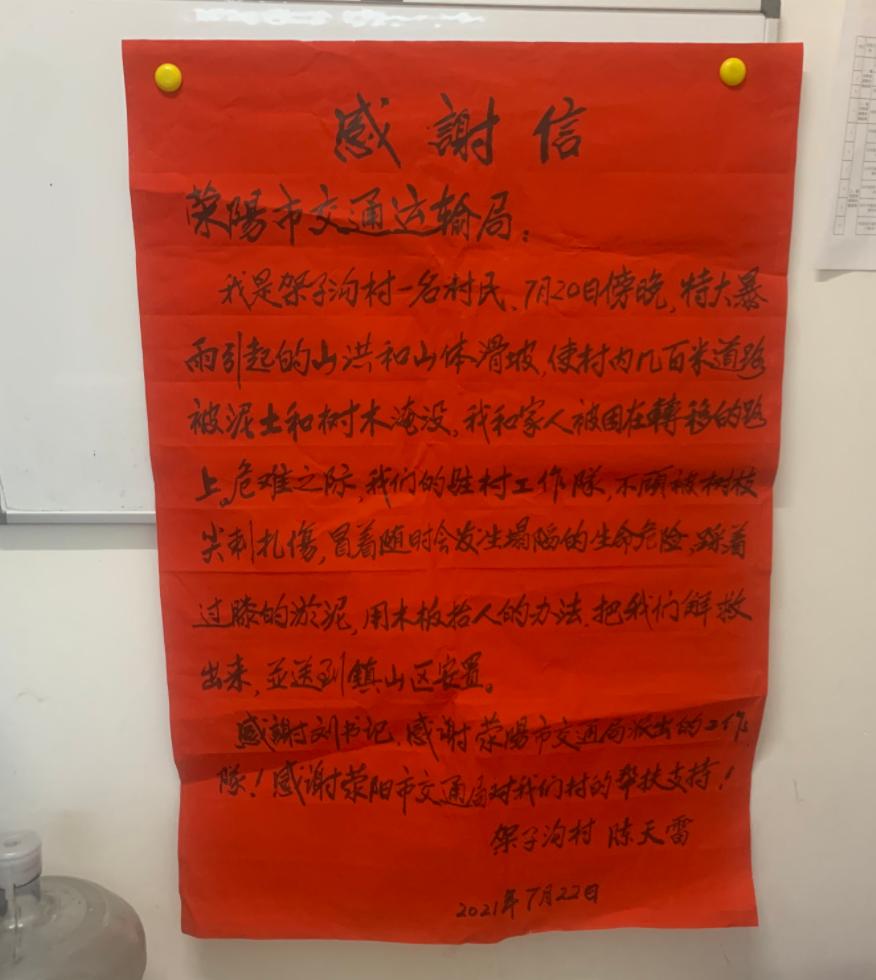 感謝信
荥陽市交通运输局：
我是架子沟村一名村民、7月20日傍晚，特大暴
雨引起的山洪和山体滑坡，使村内几百米道路
被泥土和树木淹没，我和家人被困在轉移的路
上。危难之际，我们的驻村工作隊，不顾被树枝
尖刺扎傷，冒着随时会发生塌陷的生命危险，踩着
过膝的淤泥，用木板抬人的办法，把我们解救
出来，並送到鎮山区安置。
感謝刘书记、感谢荥陽市交通局派出的工作
隊！感谢荥阳市交通局对我们村的帮扶支持！
架子沟村 陈天雷
2021年7月22日